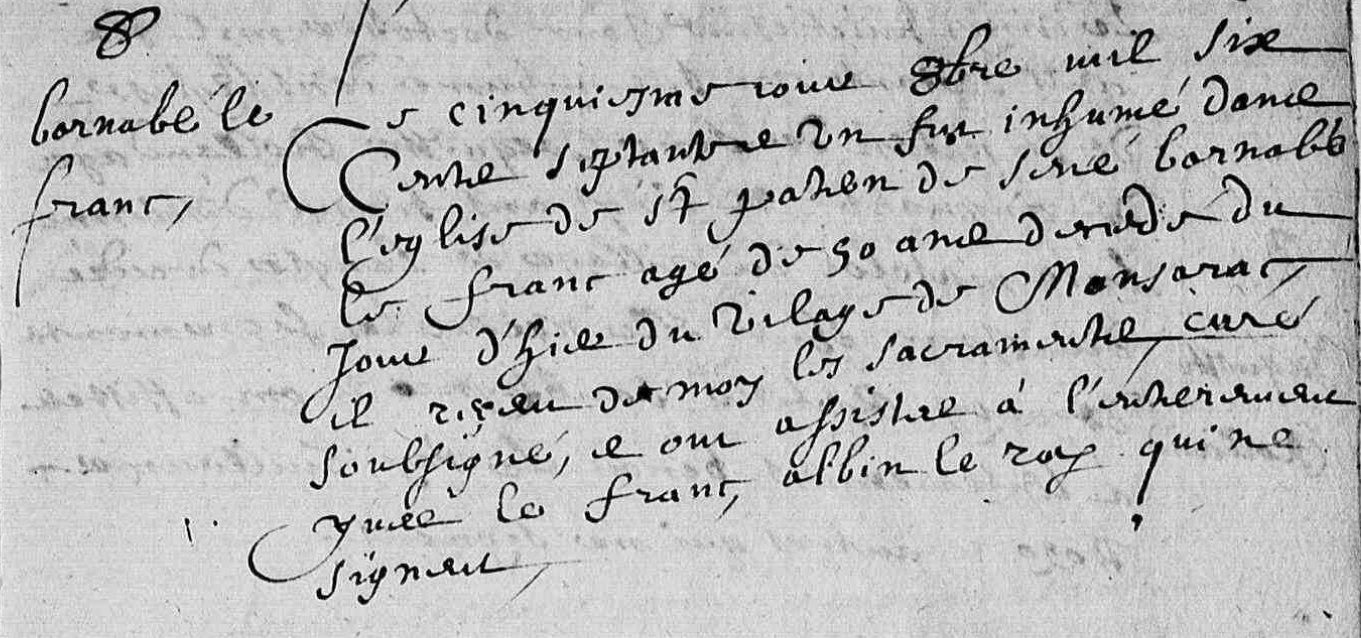 8
barnabé le
franc,
Ce cinquiesme jour 8bre mil six
cents septante un fut inhumé dans
l'eglise de st patern de sené barnabé
le franc agé de 50 ans decedé du
jour d'hier du vilage de Monsarac,
il receu de moy les sacraments, curé
soubsigné, et ont assisté à l'enterement
yves le franc, albin le roy qui ne
signent,